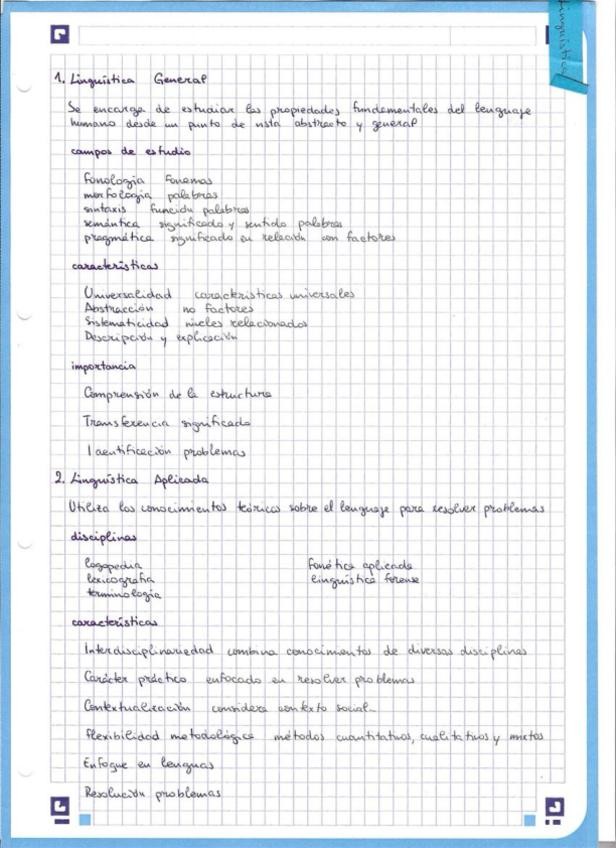 Linguística
1. Linguística General
Se encarga de estudiar las propiedades fundamentales del lenguaje
humano desde un punto de vista abstracto y general
campos de estudio
Fonología fonemas
morfología palabras
sintaxis función palabras
semántica significado y sentido palabras
pragmática significado en relación con factores
características
Universalidad características universales
Abstracción no factores
Sistematicidad niveles relacionados
Descripción y explicación
importancia
Comprensión de la estructura
Transferencia significado
Identificación problemas
2. Linguística Aplicada
Utiliza los conocimientos teóricos sobre el lenguaje para resolver problemas
disciplinas
logopedia fonética aplicada
lexicografía linguística forense
terminología
características
Interdisciplinariedad combina conocimientos de diversas disciplinas
Carácter práctico enfocado en resolver problemas
Contextualización considera contexto social
flexibilidad metodológica métodos cuantitativos, cualitativos y mixtos
Enfoque en lenguas
Resolución problemas